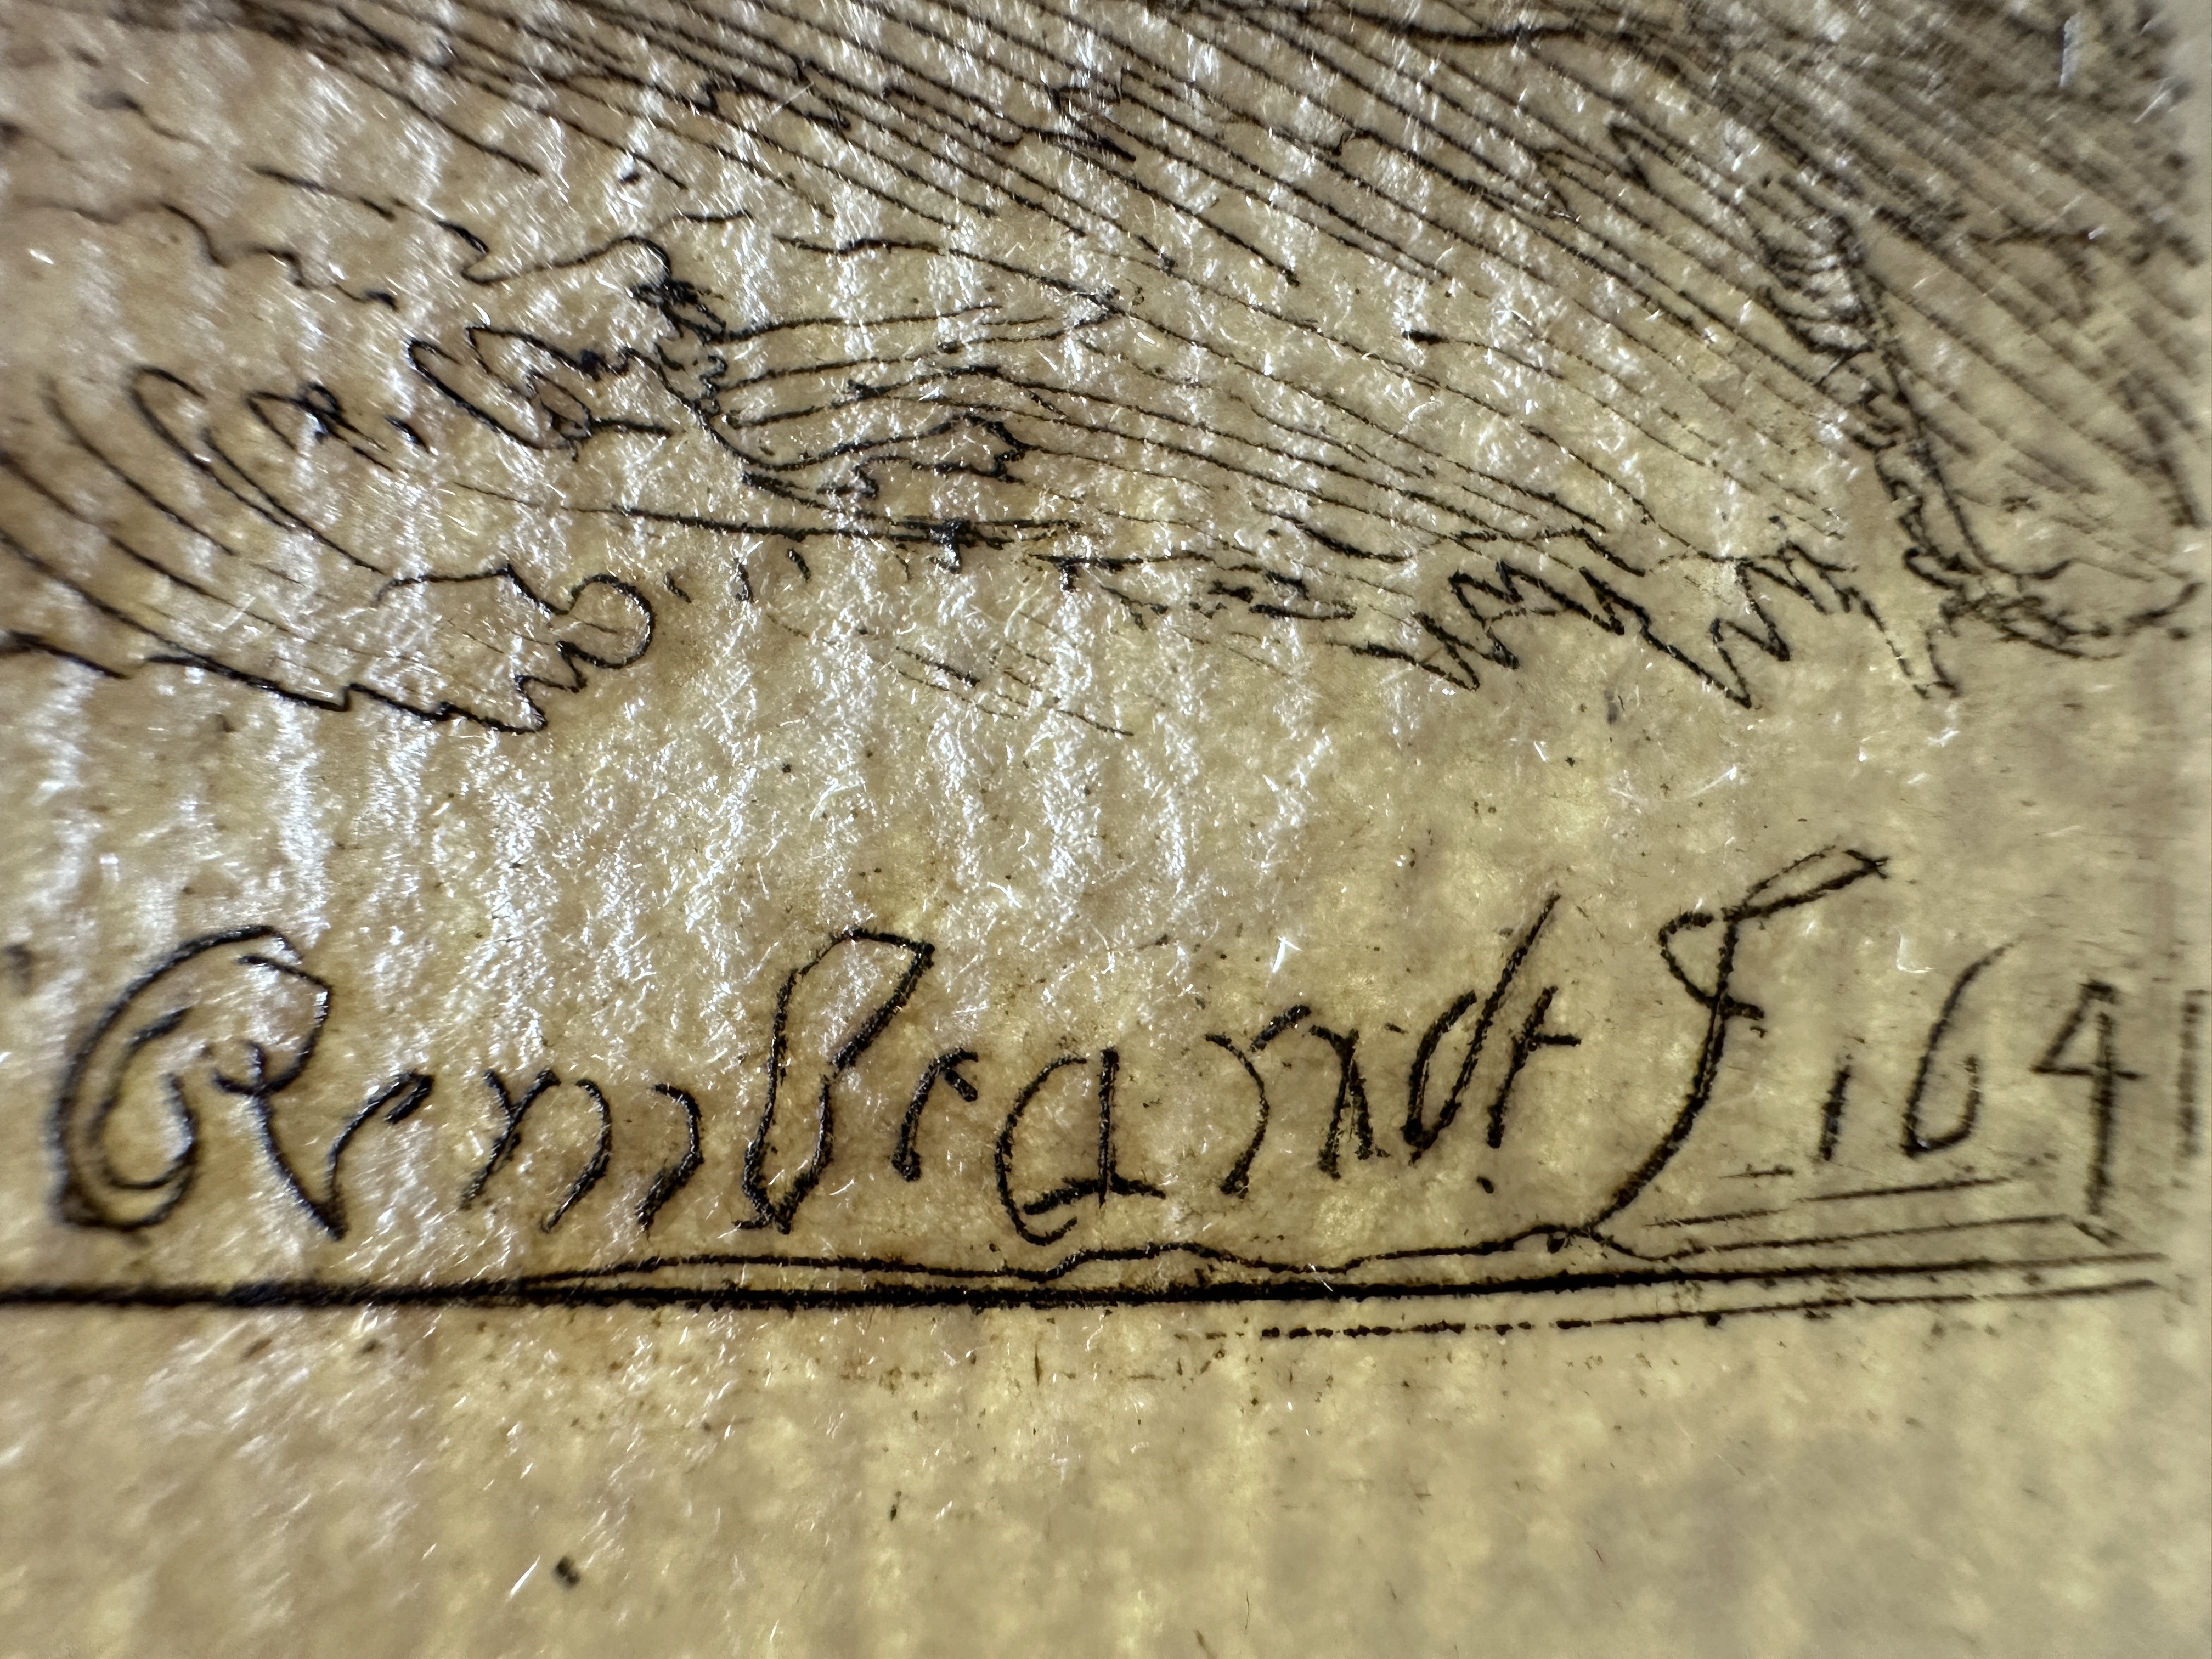 Rembrandt f 1641